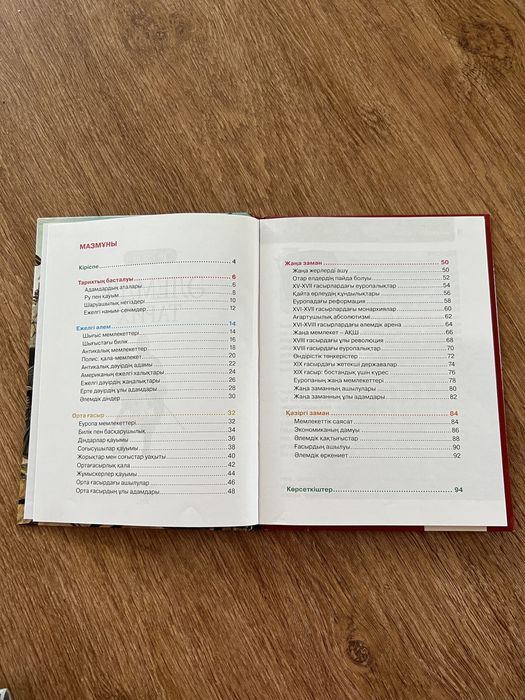 МАЗМҰНЫ
Кіріспе 4
Тарихтың басталуы 6
Адамдардың аталары 6
Ру пен қауым 8
Шаруашылық негіздері 10
Ежелгі наным-сенімдер 12
Ежелгі әлем 14
Шығыс мемлекеттері 14
Шығыстағы билік 16
Антикалық мемлекеттер 18
Полис: қала-мемлекет 20
Антикалық дәуірдің адамы 22
Американың ежелгі халықтары 24
Ежелгі дәуірдің жаңалықтары 26
Ерте дәуірдің ұлы адамдары 28
Әлемдік діндер 30
Орта ғасыр 32
Еуропа мемлекеттері 32
Билік пен басқарушылық 34
Діндарлар қауымы 36
Соғысушылар қауымы 38
Жорықтар мен соғыстар уақыты 40
Ортағасырлық қала 42
Жұмыскерлер қауымы 44
Орта ғасырдағы ашылулар 46
Орта ғасырдың ұлы адамдары 48
Жаңа заман 50
Жаңа жерлерді ашу 50
Отар елдердің пайда болуы 52
XV-XVII ғасырлардағы еуропалықтар 54
Қайта өрлеудің құндылықтары 56
Еуропадағы реформация 58
XVI-XVII ғасырлардағы монархиялар 60
Ағартушылық абсолютизмі 62
XVI-XVIII ғасырлардағы әлемдік арена 64
Жаңа мемлекет – АҚШ 66
XVIII ғасырдағы ұлы революция 68
XVIII ғасырдағы еуропалықтар 70
Өндірістік төңкерістер 72
XIX ғасырдағы жетекші державалар 74
XIX ғасыр: бостандық үшін күрес 76
Еуропаның жаңа мемлекеттері 78
Жаңа заманның ашылулары 80
Жаңа заманның ұлы адамдары 82
Қазіргі заман 84
Мемлекеттік саясат 84
Экономиканың дамуы 86
Әлемдік қақтығыстар 88
Ғасырдың ашылуы 90
Әлемдік өркениет 92
Көрсеткіштер 94